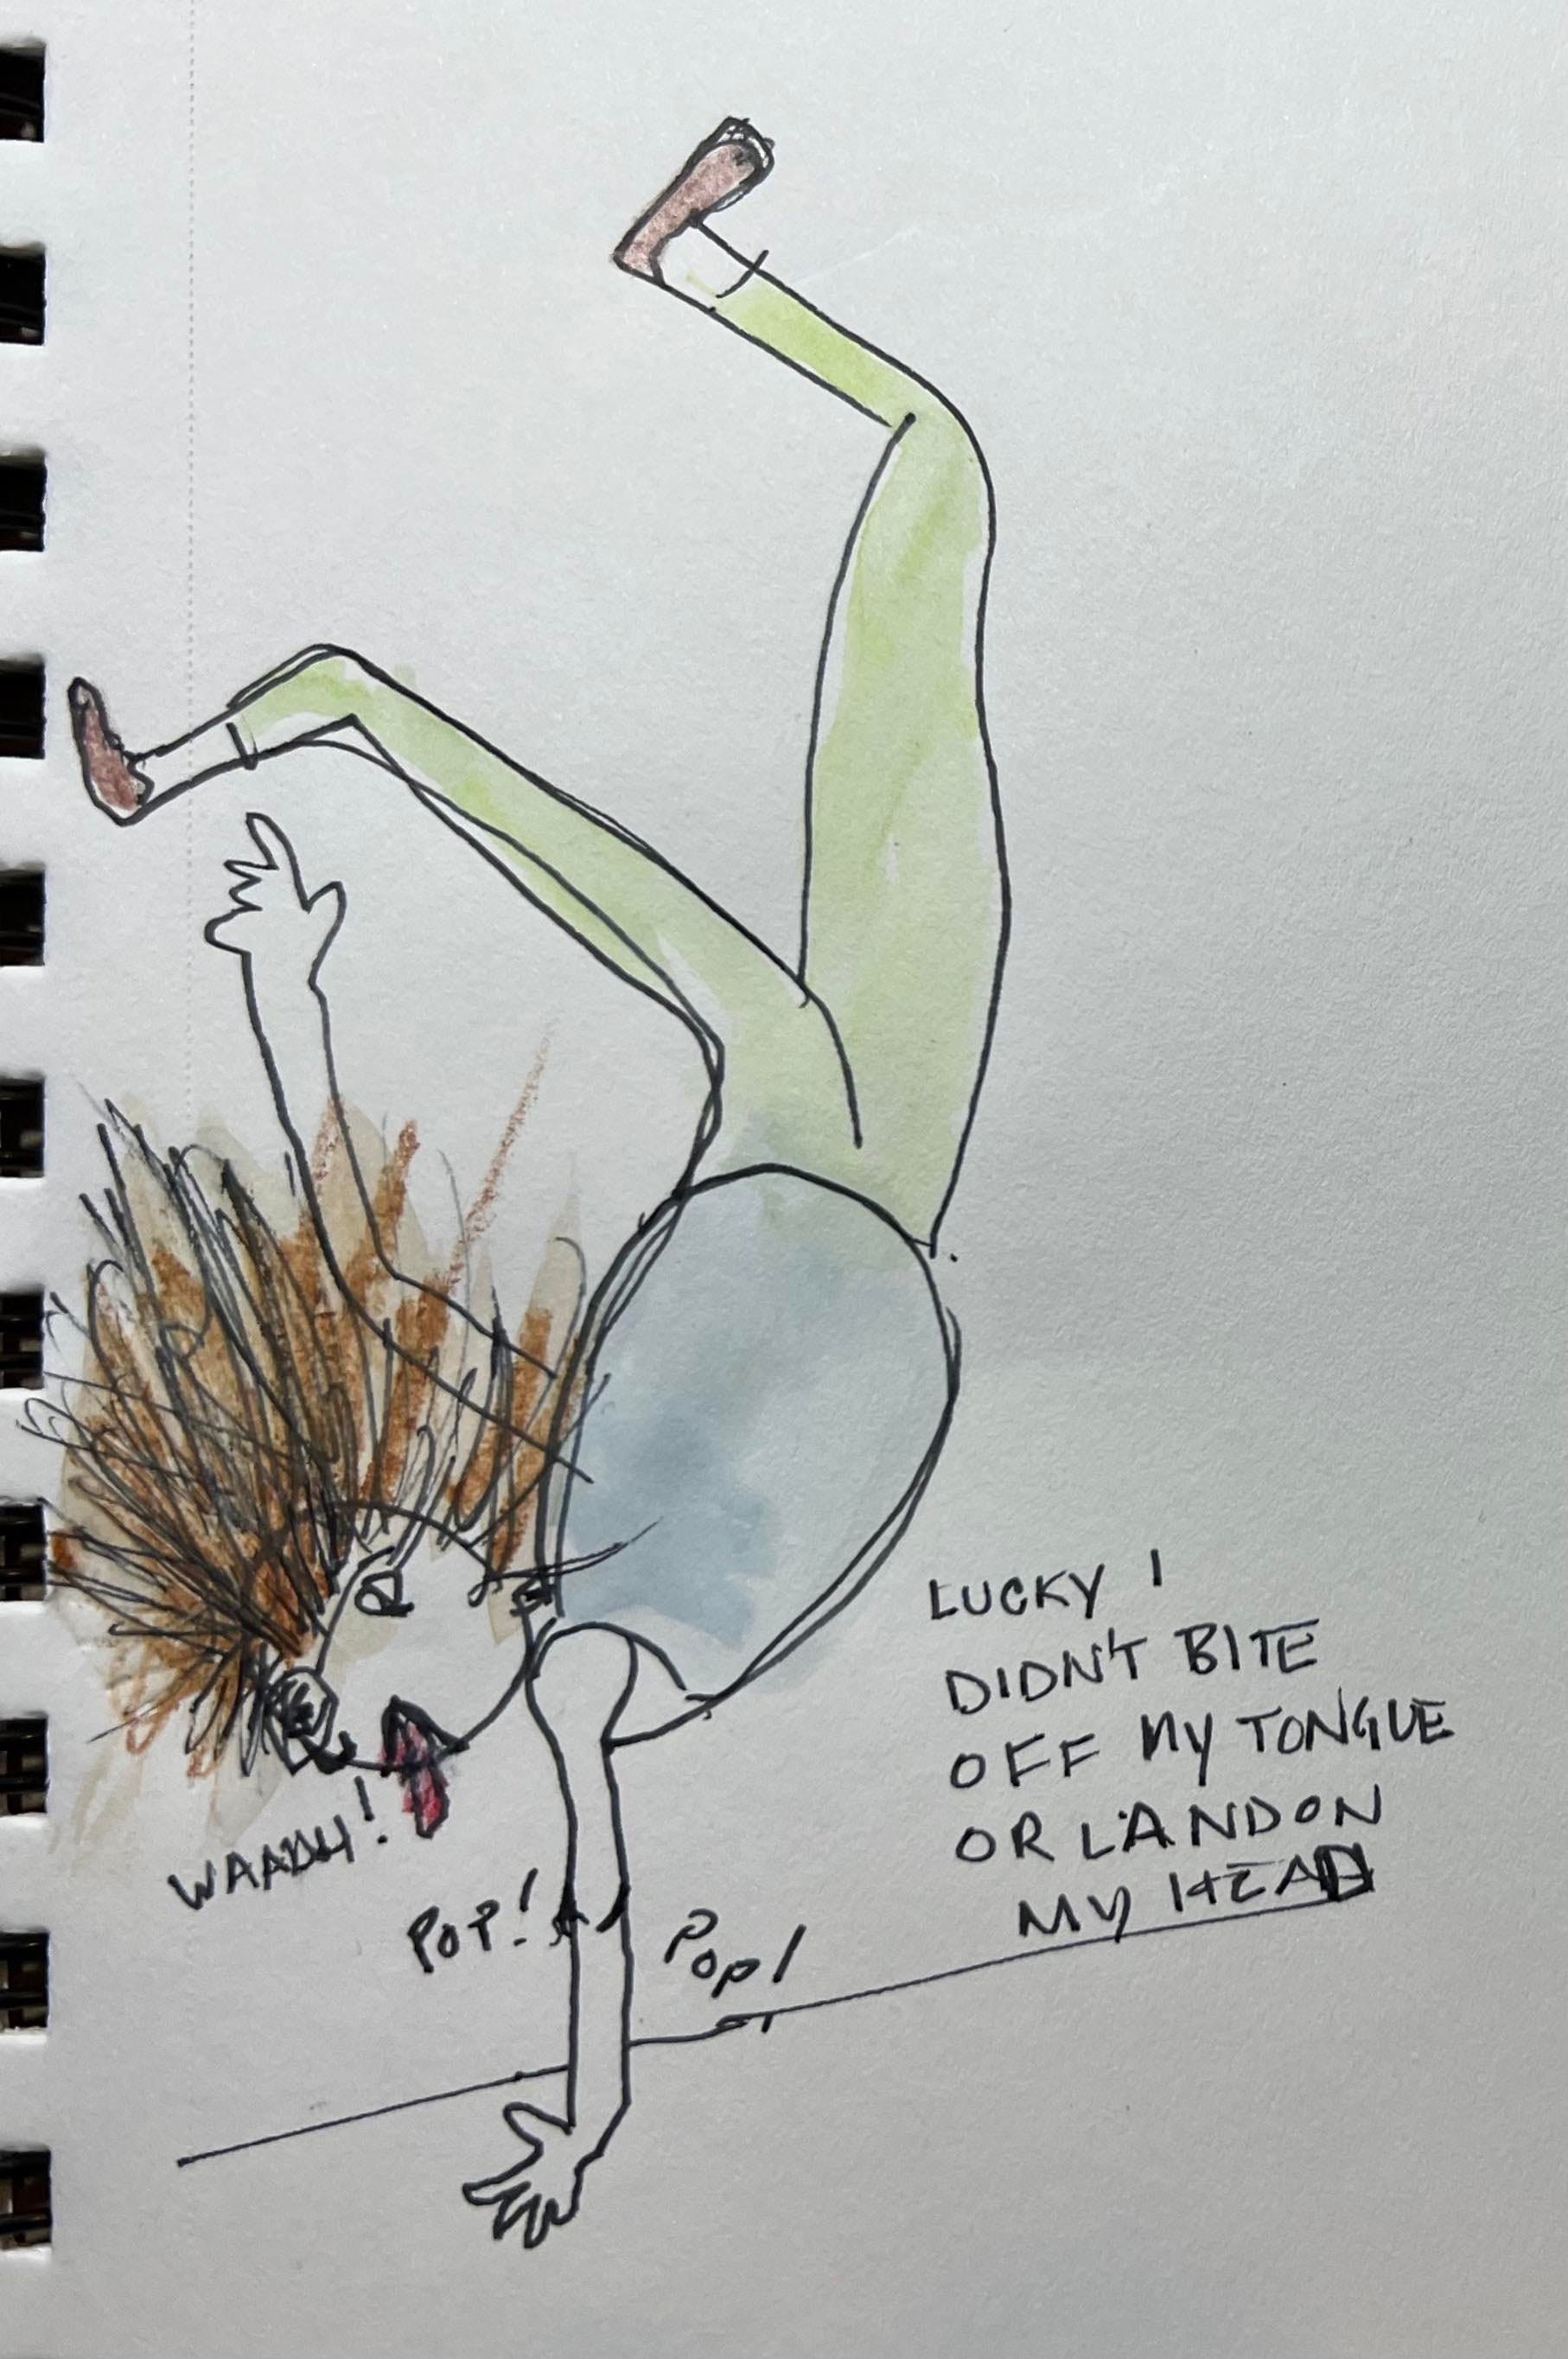 LUCKY I
DIDN'T BITE
OFF MY TONGUE
OR LANDON
MY HEAD
WAAAH!
POP!
POP!